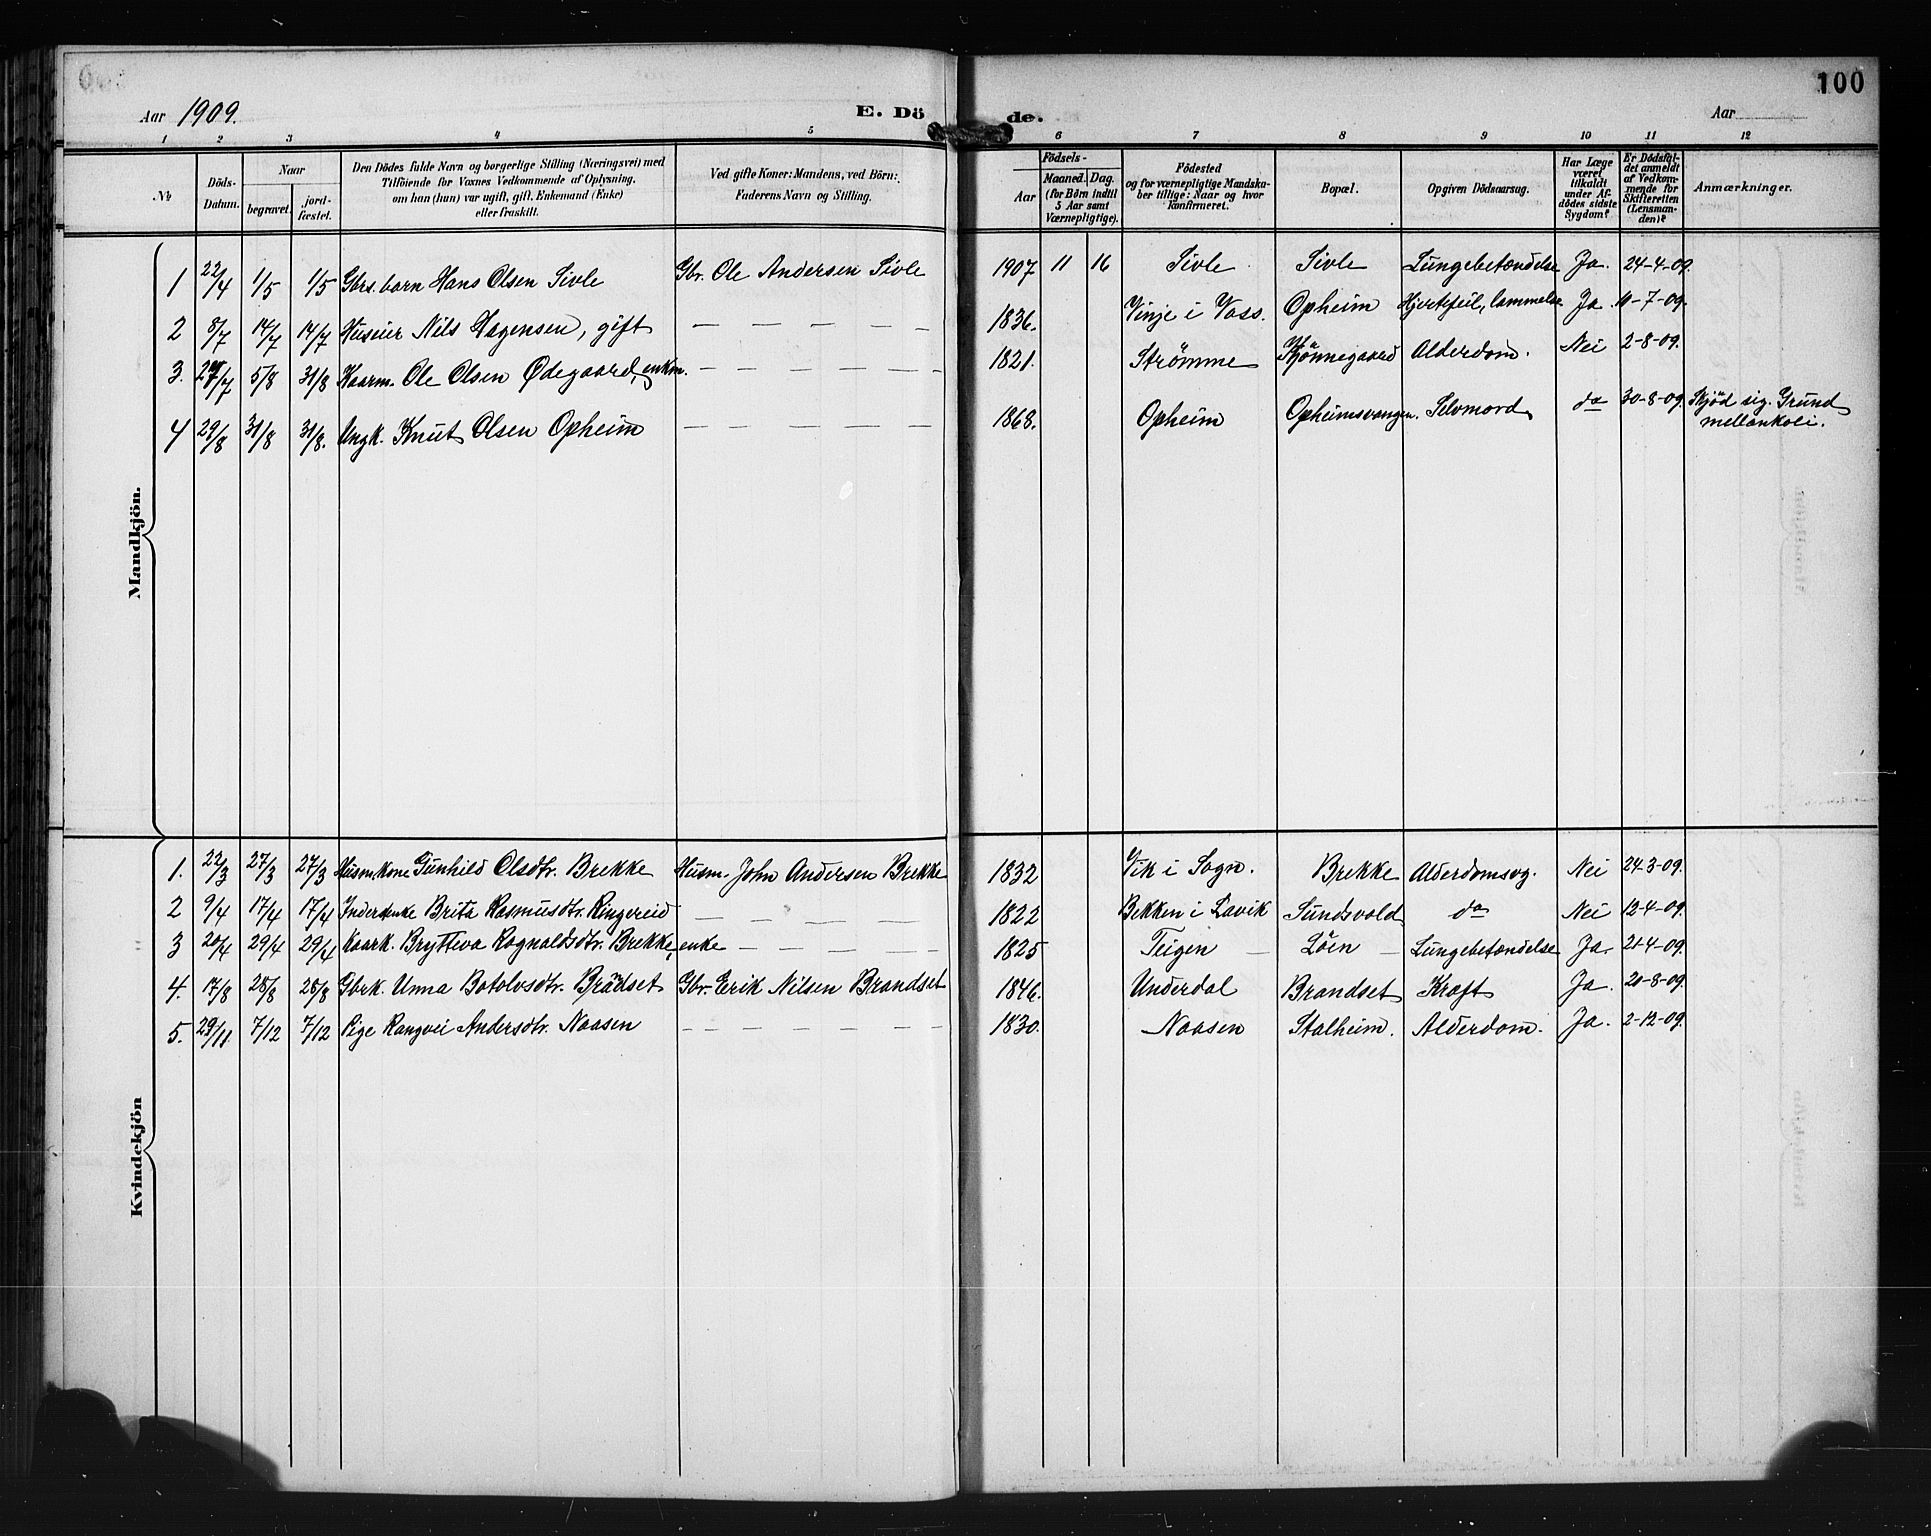 100
Aar 1909.
E. Döde.
Aar
1 2 3 4 5 6 7 8 9 10 11 12
№
Döds-Datum.
Naar
begravet.
jord-fæstet.
Den Dödes fulde Navn og borgerlige Stilling (Næringsvei) med
Tilföiende for Voxnes Vedkommende af Oplysning,
om han (hun) var ugift, gift, Enkemand (Enke)
eller fraskilt.
Ved gifte Koner: Mandens, ved Börn:
Faderens Navn og Stilling.
Födsels-
Aar
Maaned. Dag.
(for Börn indtil
5 Aar samt
Værnepligtige).
Födested
og for værnepligtige Mandska-
ber tillige: Naar og hvor
konfirmeret.
Bopæl.
Opgiven Dödsaarsag.
Har Læge
været
tilkaldt
under Af-
dödes sidste
Sygdom?
Er Dödsfal-
det anmeldt
af Vedkom-
mende for
Skifteretten
(Lensman-
den)?
Anmærkninger.
Mandkjön.
1 22/4 1/5 1/5 Gbrs. barn Hans Olsen Sivle Gbr. Ole Andersen Sivle 1907 11 16 Sivle Sivle Lungebetændelse Ja. 24-4-09.
2 8/7 14/7 14/7 Huseier Nils Hagensen, gift — — — — — 1836. Vinje i Voss. Opheim Hjertefeil, lammelse Ja. 10-7-09.
3. 24/7 5/8 31/8 Kaarm. Ole Olsen Ødegaard, enkm. — — — — — 1821. Strømme Alderdom. Nei 2-8-09.
4 29/8 31/8 31/8. Ungk. Knut Olsen Opheim — — — — — 1868. Opheim Opheimsvangen. Selvmord do 30-8-09. Skjød sig. Grund
mellankoli.
Kvindekjön
1. 22/3 27/3 27/3 Husm.kone Gunhild Olsdtr. Brekke Husm. John Andersen Brekke 1832 Vik i Sogn. Brekke Alderdomsvg. Nei 24-3-09.
2 9/4 17/4 17/4 Inderstenke Brita Rasmusdtr. Ringereid — — — — — 1822 Bekken i Lavik Sundsvold do Nei 12-4-09.
3 20/4 29/4 29/4 Kaark. Brytteva Ragnaldsdtr. Brekke, enke — — — — 1825 Teigen — Löen — Lungebetændelse Ja. 21-4-09.
4. 17/8 28/8 28/8 Gbrk. Unna Botolvsdtr. Brädset Gbr. Erik Nilsen Brandset 1846. Underdal Brandset Kræft Ja. 20-8-09.
5. 29/11 7/12 7/12 Pige Rangvei Andersdtr. Naasen — — — — — 1830. Naasen Stalheim. Alderdom. Ja. 2-12-09.